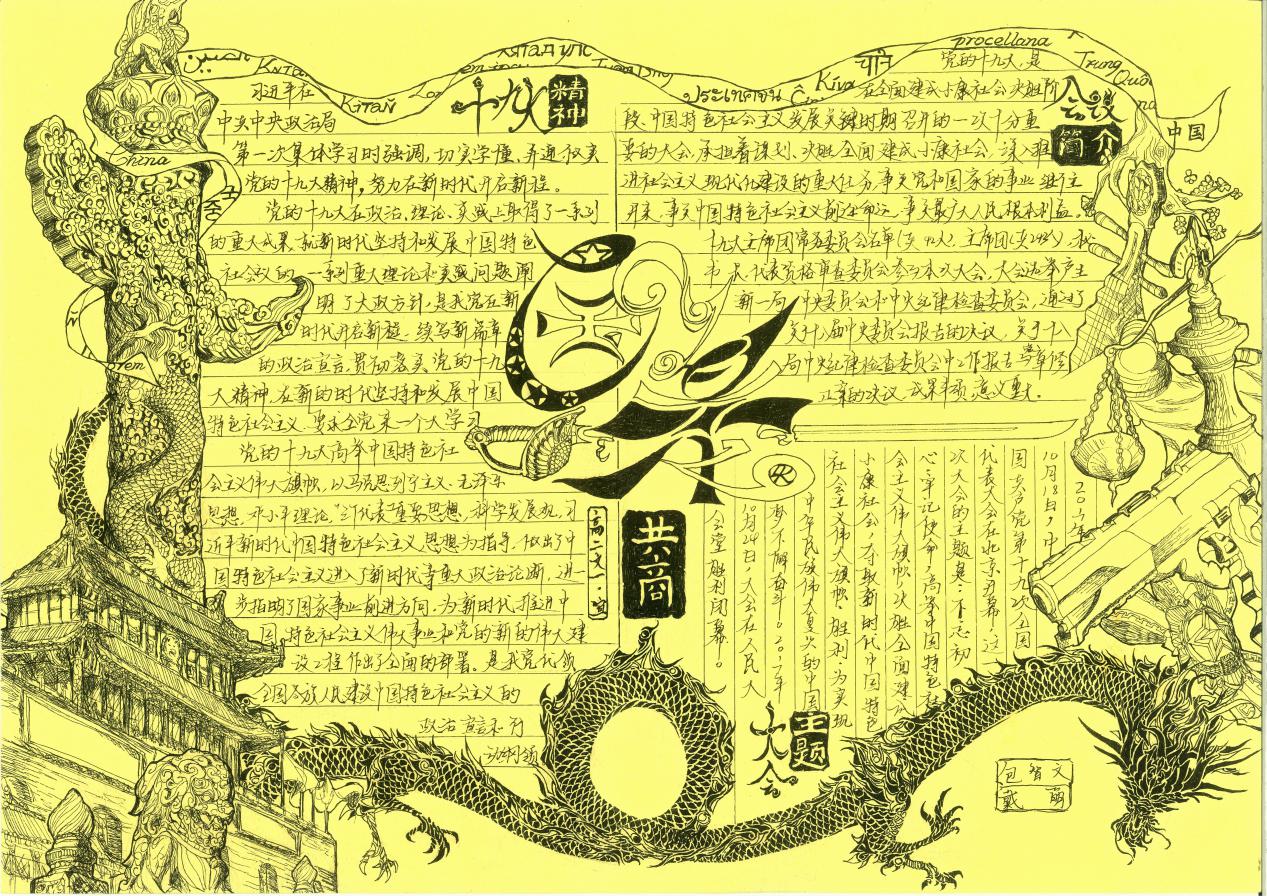 China
Kitan
procellana
Trung
Quốc
Kíva
ประเทศจีน
中国
十九大
精神
习近平在
中共中央政治局
第一次集体学习时强调,切实学懂、弄通、做实
党的十九大精神,努力在新时代开启新程。
党的十九大在政治、理论、实践上取得了一系列
的重大成果,就新时代坚持和发展中国特色
社会主义的一系列重大理论和实践问题阐
明了大政方针,是我党在新
时代开启新程、续写新篇章
的政治宣言,贯彻落实党的十九
大精神,在新的时代坚持和发展中国
特色社会主义,要求全党来一个大学习
党的十九大高举中国特色社
会主义伟大旗帜,以马克思列宁主义、毛泽东
思想、邓小平理论、“三个代表”重要思想、科学发展观、习
近平新时代中国特色社会主义思想为指导,做出了中
国特色社会主义进入了新时代等重大政治论断,进一
步指明了国家事业前进方向,为新时代推进中
国特色社会主义伟大事业和党的新的伟大建
设工程作出了全面的部署。是我党代领
全国各族人民建设中国特色社会主义的
政治宣言和行
动纲领
会议
简介
党的十九大,是
在全面建成小康社会决胜阶
段、中国特色社会主义发展关键时期召开的一次十分重
要的大会,承担着谋划、决胜全面建成小康社会、深入推
进社会主义现代化建设的重大任务,事关党和国家的事业继往
开来,事关中国特色社会主义前途命运,事关最广大人民根本利益。
十九大主席团常务委员会名单(共42人)、主席团(共243人)、秘
书长、代表资格审查委员会参与本次大会,大会选举产生
新一届中央委员会和中央纪律检查委员会,通过了
关于十八届中央委员会报告的决议、关于十八
届中央纪律检查委员会工作报告
正案的决议,成果丰硕,意义重大。
大会
主题
2017年
10月18日,中
国共产党第十九次全国
代表大会在北京开幕,这
次大会的主题是:不忘初
心,牢记使命,高举中国特色社
会主义伟大旗帜,决胜全面建成
小康社会,夺取新时代中国特色
社会主义伟大旗帜、胜利,为实现
中华民族伟大复兴的中国
梦不懈奋斗。2017年
10月24日,大会在人民大
会堂胜利闭幕。
共商
高二文一·宣
包智文
戴萌